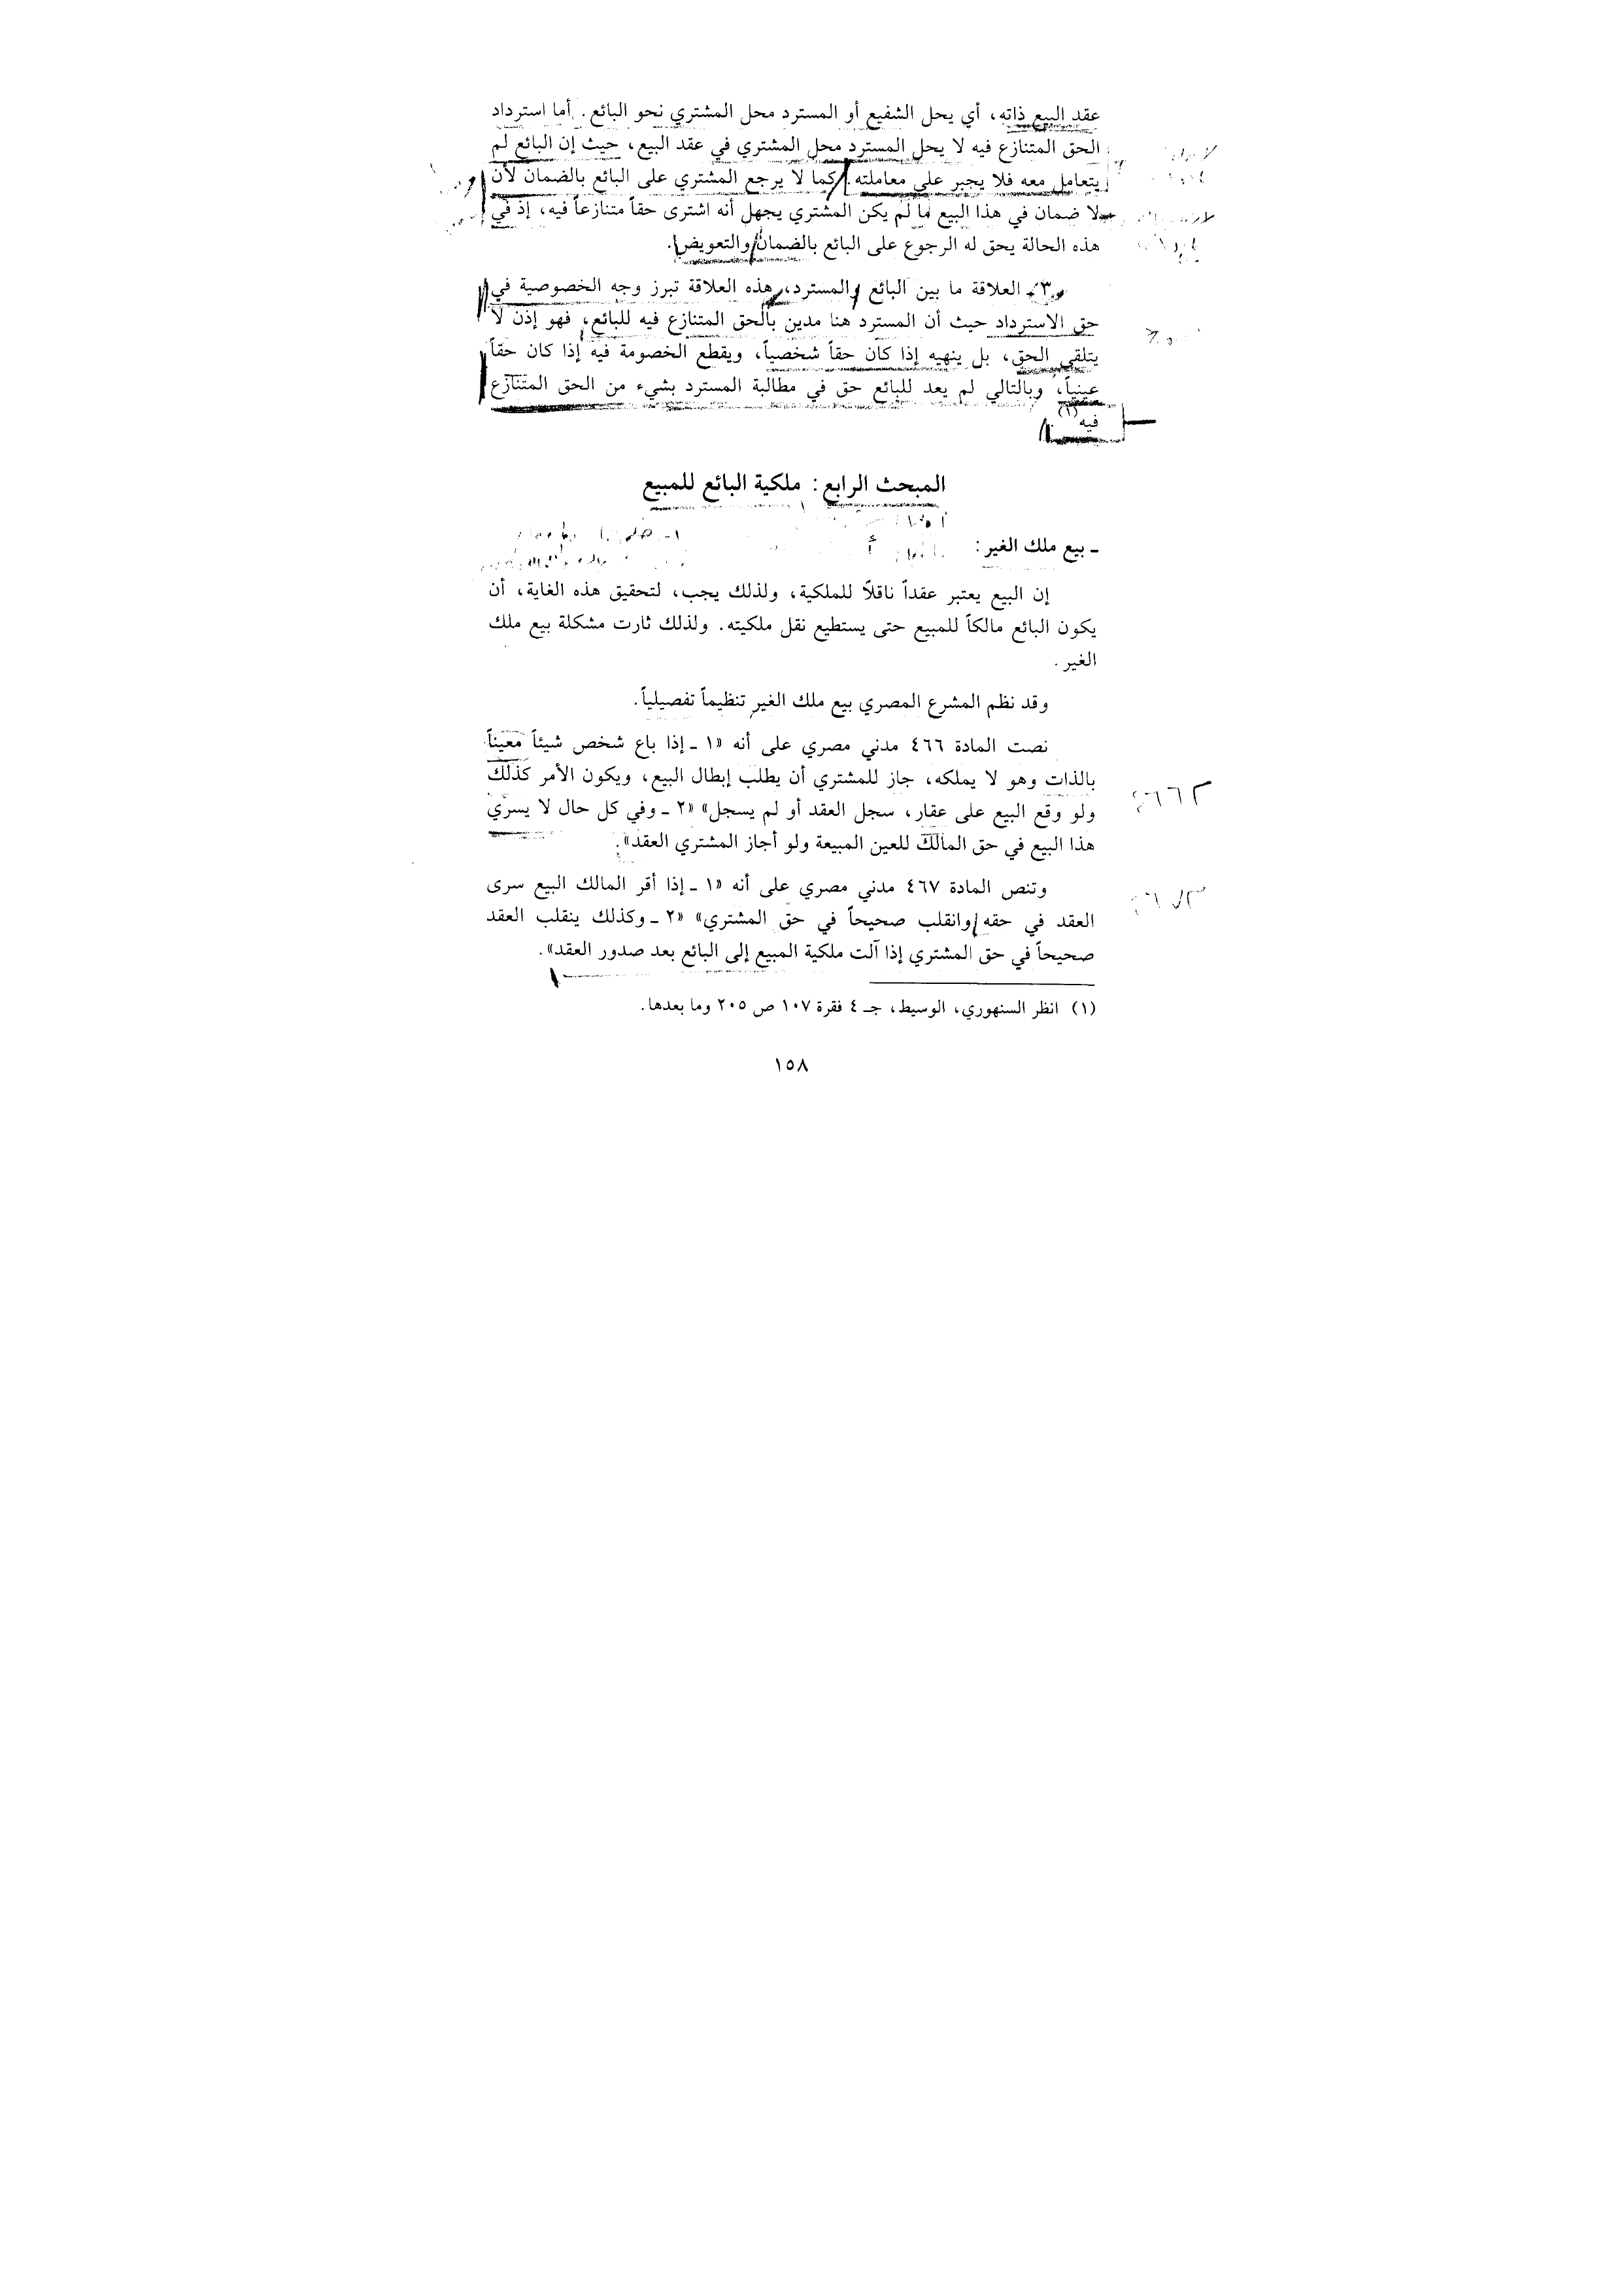 عقد البيع ذاته، أي يحل الشفيع أو المسترد محل المشتري نحو البائع. أما استرداد
الحق المتنازع فيه لا يحل المسترد محل المشتري في عقد البيع، حيث إن البائع لم
يتعامل معه فلا يجبر على معاملته. كما لا يرجع المشتري على البائع بالضمان لأن
لا ضمان في هذا البيع ما لم يكن المشتري يجهل أنه اشترى حقاً متنازعاً فيه، إذ في
هذه الحالة يحق له الرجوع على البائع بالضمان والتعويض.
٣ - العلاقة ما بين البائع والمسترد، هذه العلاقة تبرز وجه الخصوصية في
حق الاسترداد حيث أن المسترد هنا مدين بالحق المتنازع فيه للبائع، فهو إذن لا
يتلقى الحق، بل ينهيه إذا كان حقاً شخصياً، ويقطع الخصومة فيه إذا كان حقاً
عينياً، وبالتالي لم يعد للبائع حق في مطالبة المسترد بشيء من الحق المتنازع
فيه(١).
المبحث الرابع: ملكية البائع للمبيع
ـ بيع ملك الغير:
إن البيع يعتبر عقداً ناقلاً للملكية، ولذلك يجب، لتحقيق هذه الغاية، أن
يكون البائع مالكاً للمبيع حتى يستطيع نقل ملكيته. ولذلك ثارت مشكلة بيع ملك
الغير.
وقد نظم المشرع المصري بيع ملك الغير تنظيماً تفصيلياً.
نصت المادة ٤٦٦ مدني مصري على أنه «١ ـ إذا باع شخص شيئاً معيناً
بالذات وهو لا يملكه، جاز للمشتري أن يطلب إبطال البيع، ويكون الأمر كذلك
ولو وقع البيع على عقار، سجل العقد أو لم يسجل» «٢ ـ وفي كل حال لا يسري
هذا البيع في حق المالك للعين المبيعة ولو أجاز المشتري العقد».
م ٤٦٦
وتنص المادة ٤٦٧ مدني مصري على أنه «١ ـ إذا أقر المالك البيع سرى
العقد في حقه وانقلب صحيحاً في حق المشتري» «٢ ـ وكذلك ينقلب العقد
صحيحاً في حق المشتري إذا آلت ملكية المبيع إلى البائع بعد صدور العقد».
(١) انظر السنهوري، الوسيط، جـ ٤ فقرة ١٠٧ ص ٢٠٥ وما بعدها.
١٥٨